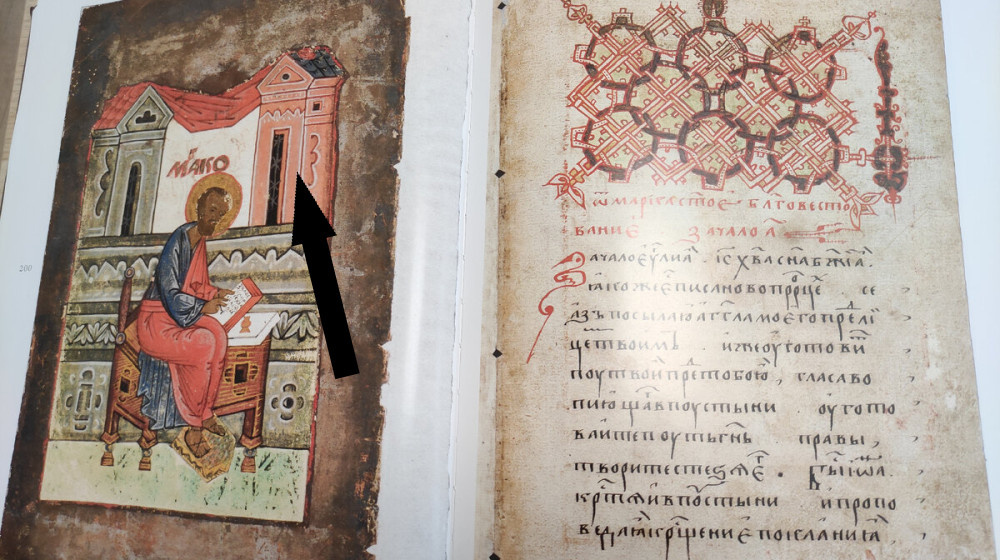 200
МАКО
ѿ марка с҃тое бл҃говество
вание зачало а҃
Зачало еѵ҃лиа іс҃ хв҃а сн҃а бж҃їа.
ꙗкоже писано во прⷪ҇це се
азъ посылаю аг҃гла моего преⷣ лі
цеⷨ твоимъ иже оуготовиⷮ
поуⷮ твои преⷣ тобою, гласъ во
пиющаⷢ в поустыни оугото
ваите поуть гн҃ь правы,
творите стезѧ еⷢ. Быⷭ іѡа.
крⷭ҇тѧи в поустыни и пропо
ведаꙗ кр҃щение покаꙗниꙗ